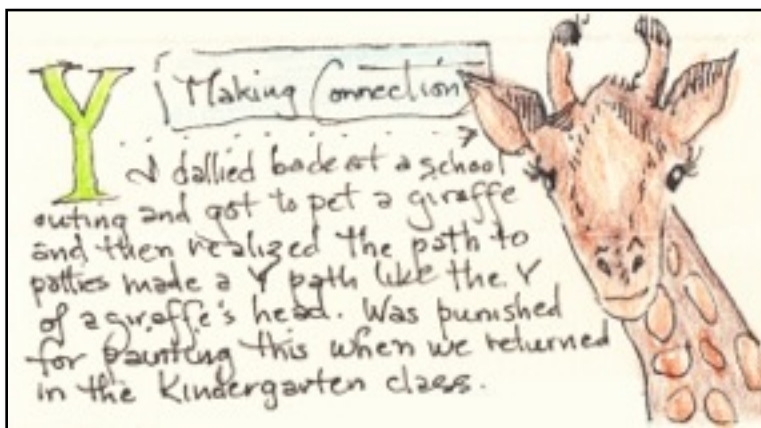 Y
Making Connection
I dallied back at a school
outing and got to pet a giraffe
and then realized the path to
patties made a Y path like the Y
of a giraffe's head. Was punished
for painting this when we returned
in the Kindergarten class.